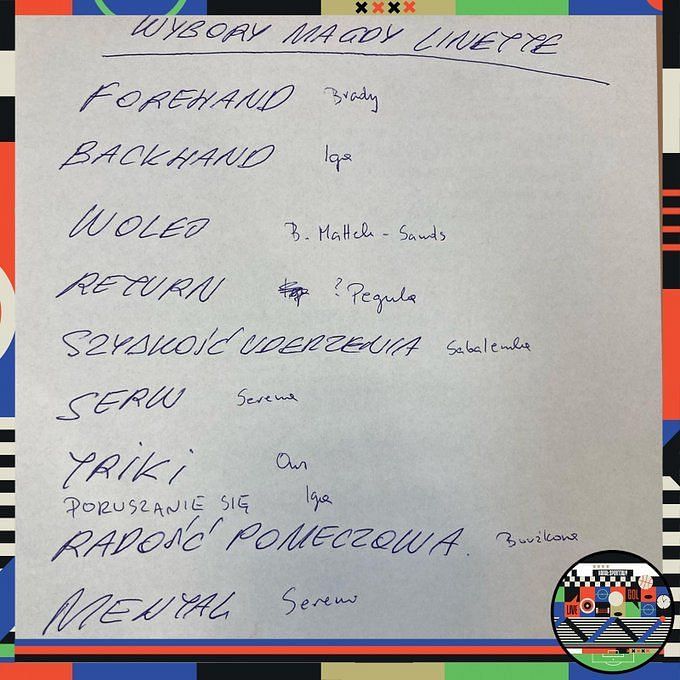 WYBORY MAGDY LINETTE
FOREHAND Brady
BACKHAND Iga
WOLEJ B. Mattek-Sands
RETURN ? Pegula
SZYBKOŚĆ UDERZENIA Sabalenka
SERW Serena
TRIKI Ons
PORUSZANIE SIĘ Iga
RADOŚĆ POMECZOWA. Bouzkova
MENTAL Serena
KANAŁ SPORTOWY
LIVE
GOL